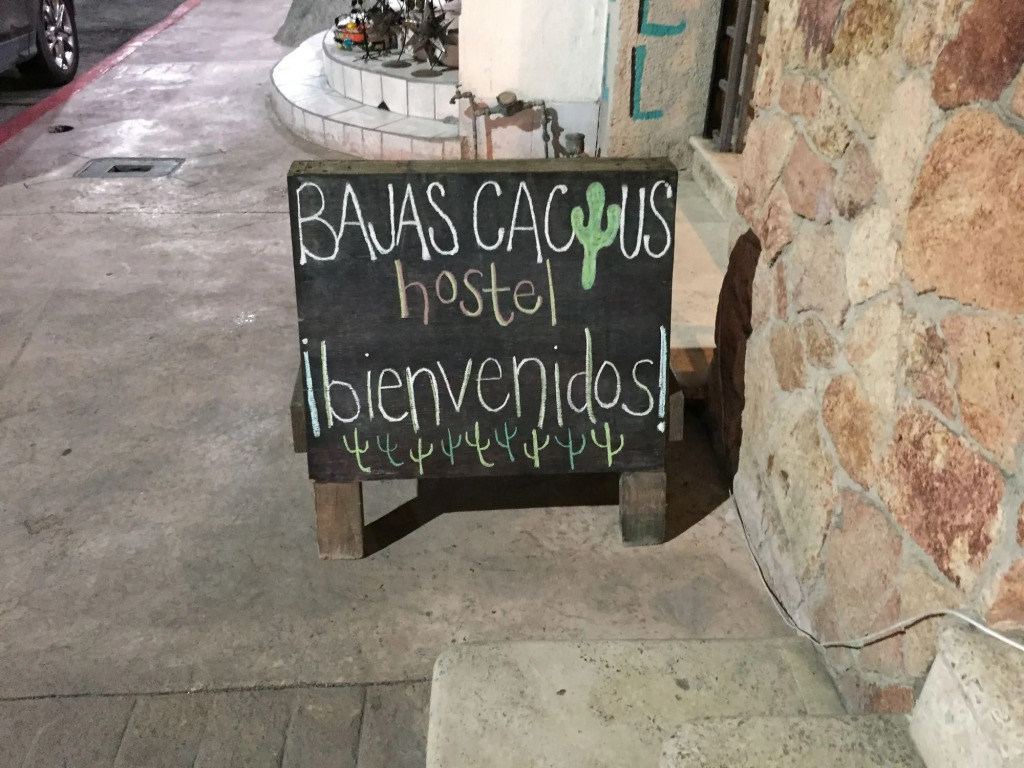 LL
BAJAS CACTUS
hostel
¡bienvenidos!